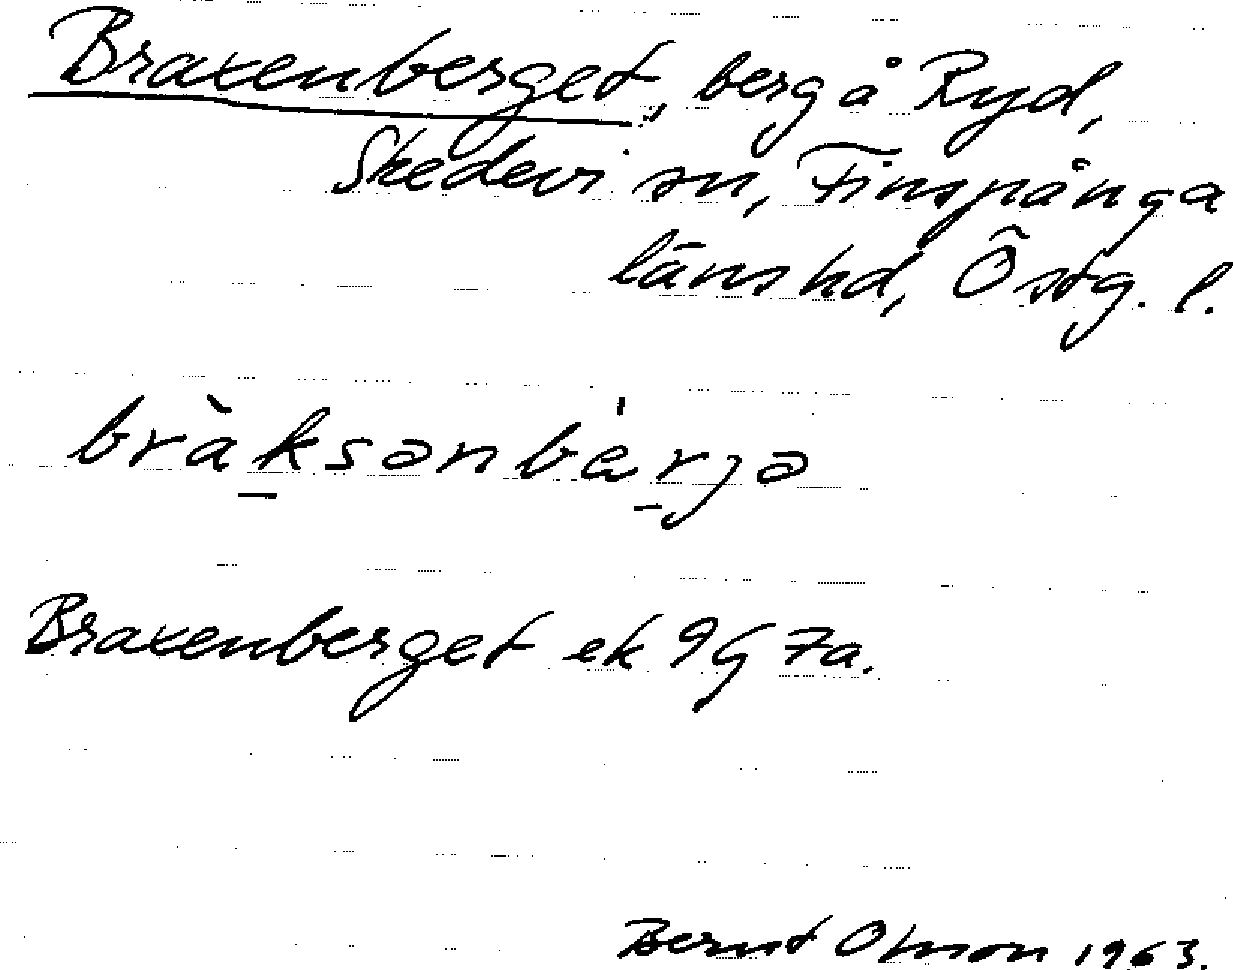 Braxenberget, berg å Ryd,
Skedevi sn, Finspånga
länshd, Östg. l.
bràksənbàrjə
Braxenberget ek 9G 7a.
Bernt Olsson 1963.